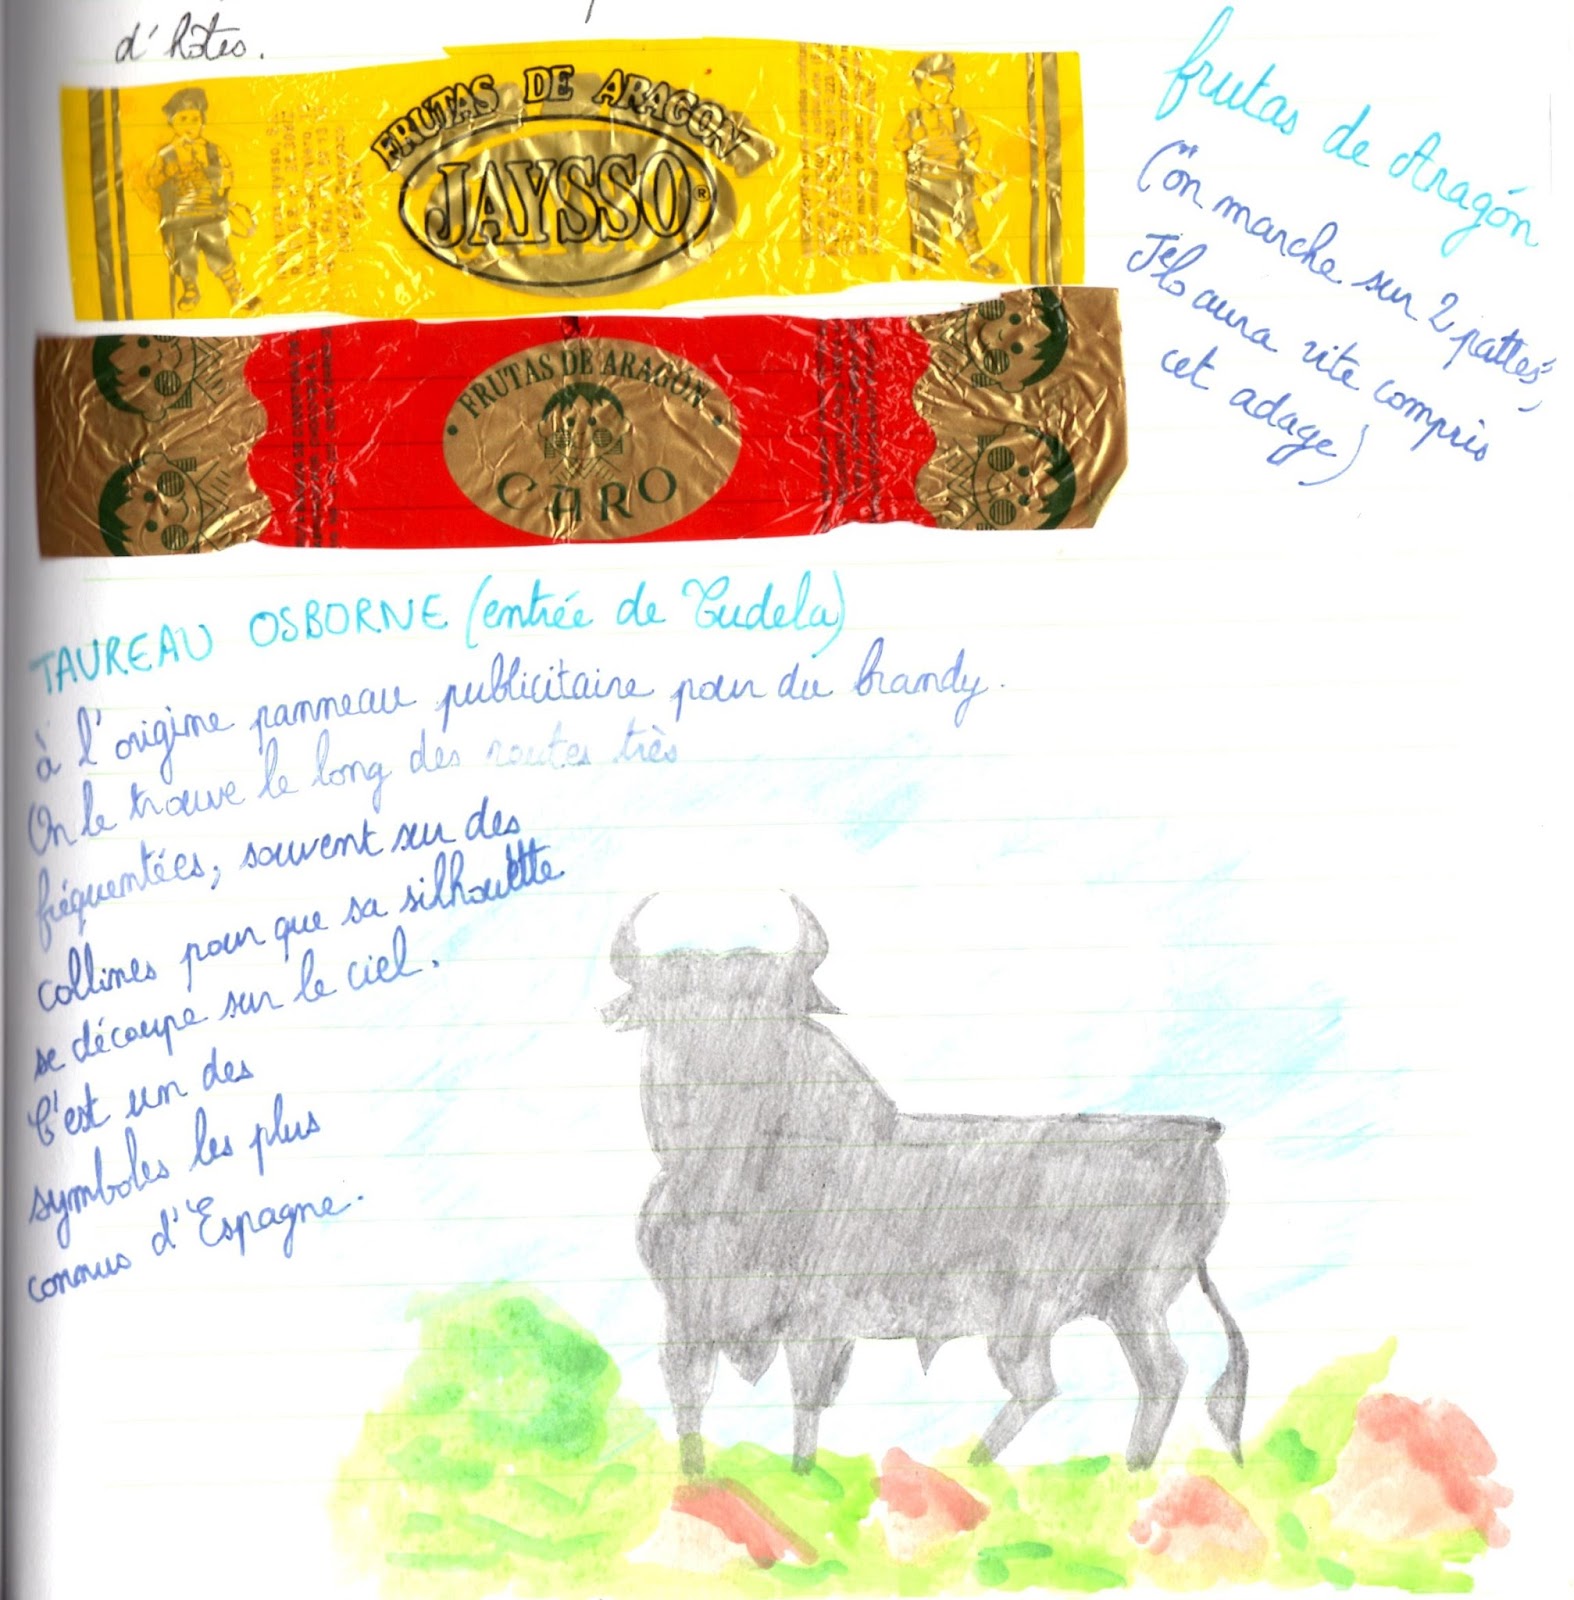 d'hôtes.
FRUTAS DE ARAGON
JAYSSO®
frutas de Aragón
("on marche sur 2 pattes",
Jlo aura vite compris
cet adage)
• FRUTAS DE ARAGÓN •
CARO
TAUREAU OSBORNE (entrée de Tudela)
à l'origine panneau publicitaire pour du brandy.
On le trouve le long des routes très
fréquentées, souvent sur des
collines pour que sa silhouette
se découpe sur le ciel.
C'est un des
symboles les plus
connus d'Espagne.